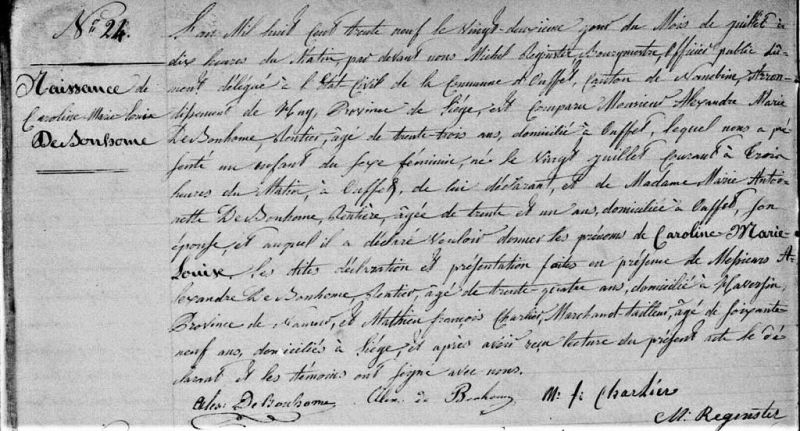 N° 24.
Naissance de
Caroline Marie Louise
De Bonhome
L'an Mil huit Cent trente neuf le Vingt-deuxième jour du Mois de juillet à
dix heures du Matin, par devant nous Michel Reginster, Bourgmestre, Officier public dû-
ment délégué à l'Etat Civil de la Commune d'Ouffet, Canton de Nandrin, Arron-
dissement de Huy, Province de Liége, est Comparu Monsieur Alexandre Marie
De Bonhome, Rentier, âgé de trente trois ans, domicilié à Ouffet, lequel nous a pré
senté un enfant du sexe féminin, né le Vingt juillet Courant à Trois
heures du Matin, à Ouffet, de lui déclarant, et de Madame Marie Antoi-
nette De Bonhome, Rentière, âgée de trente et un ans, domiciliée à Ouffet, son
épouse, et auquel il a déclaré vouloir donner les prénoms de Caroline Marie-
Louise, les dites déclaration et présentation faites en présence de Messieurs A-
lexandre De Bonhome, Rentier, âgé de trente-quatre ans, domicilié à
Province de Namur, et Mathieu François Charlier, Marchand tailleur, âgé de soixante
neuf ans, domiciliés à Liége, et après avoir reçu lecture du présent acte le dé
clarant et les témoins ont signé avec nous.
Alex. De Bonhome Alex. de Bonhome M. f. Charlier
M. Reginster